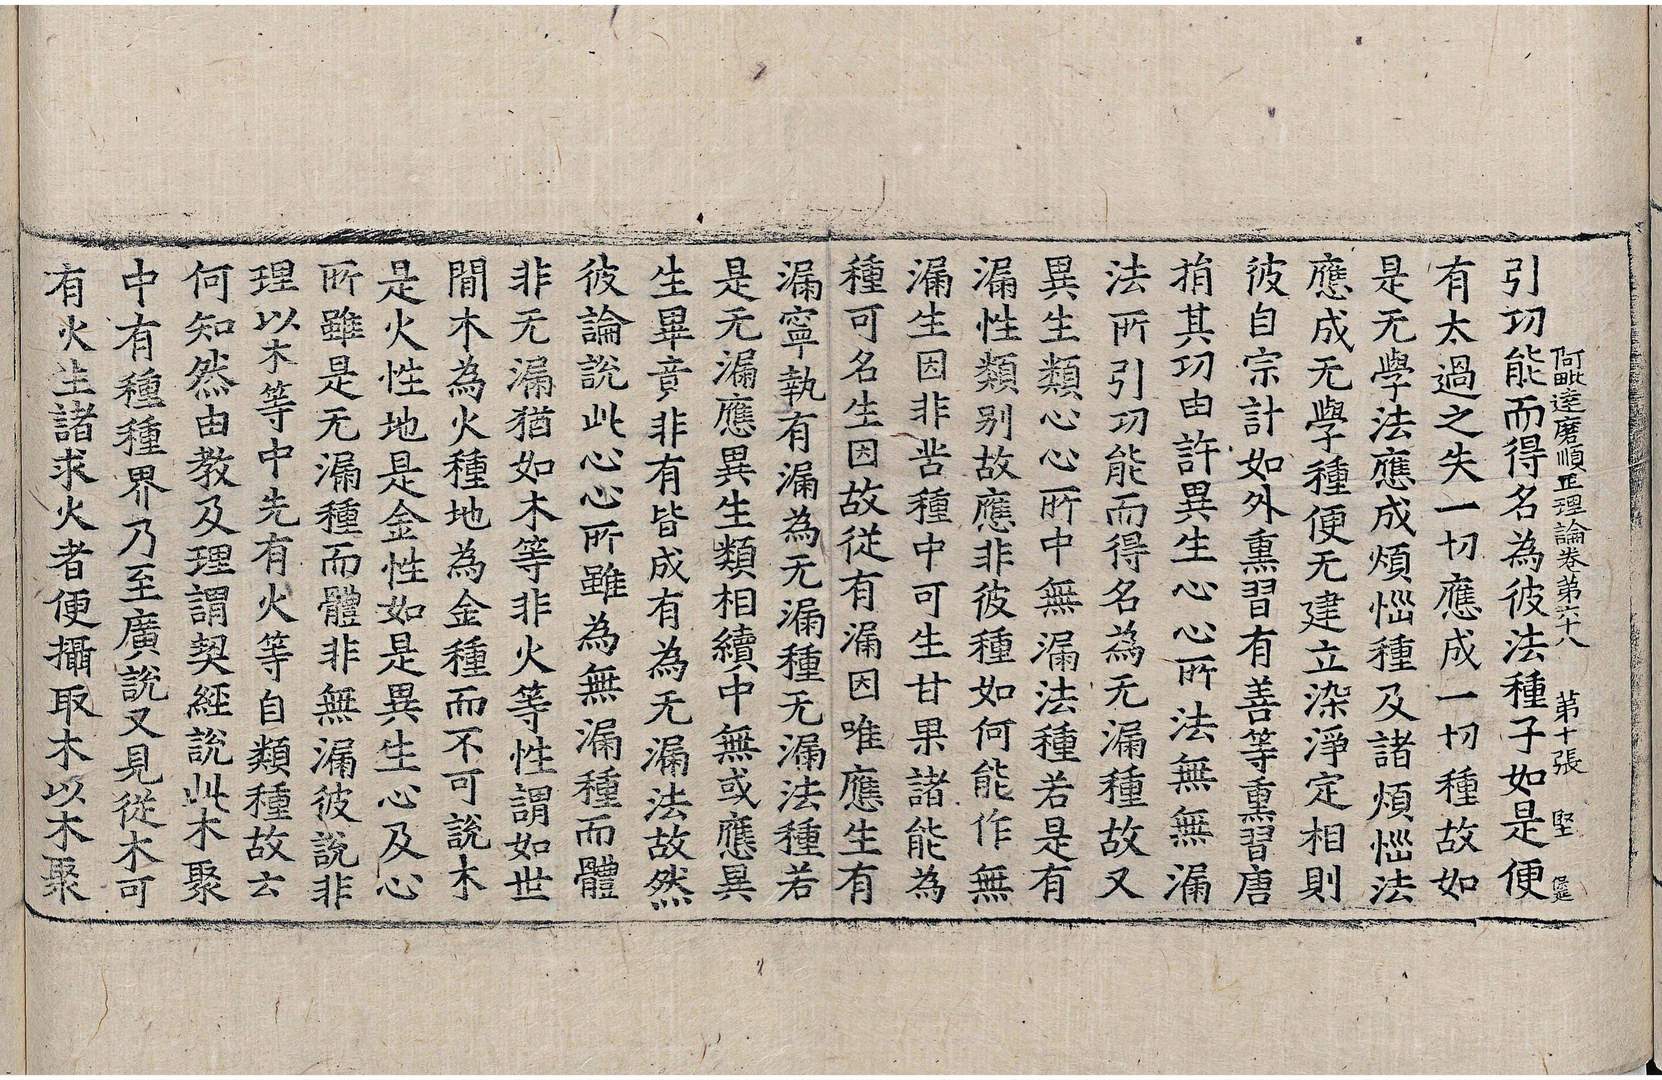 阿毗達磨順正理論卷第六十八　第十張　堅
引功能而得名為彼法種子如是便
有太過之失一切應成一切種故如
是无學法應成煩惱種及諸煩惱法
應成无學種便无建立染淨定相則
彼自宗計如外熏習有善等熏習唐
捐其功由許異生心心所法無無漏
法所引功能而得名為无漏種故又
異生類心心所中無漏法種若是有
漏性類別故應非彼種如何能作無
漏生因非苦種中可生甘果諸能為
種可名生因故從有漏因唯應生有
漏寧執有漏為无漏種无漏法種若
是无漏應異生類相續中無或應異
生畢竟非有皆成有為无漏法故然
彼論說此心心所雖為無漏種而體
非无漏猶如木等非火等性謂如世
間木為火種地為金種而不可說木
是火性地是金性如是異生心及心
所雖是无漏種而體非無漏彼說非
理以木等中先有火等自類種故云
何知然由教及理謂契經說此木聚
中有種種界乃至廣說又見從木可
有火生諸求火者便攝取木以木聚